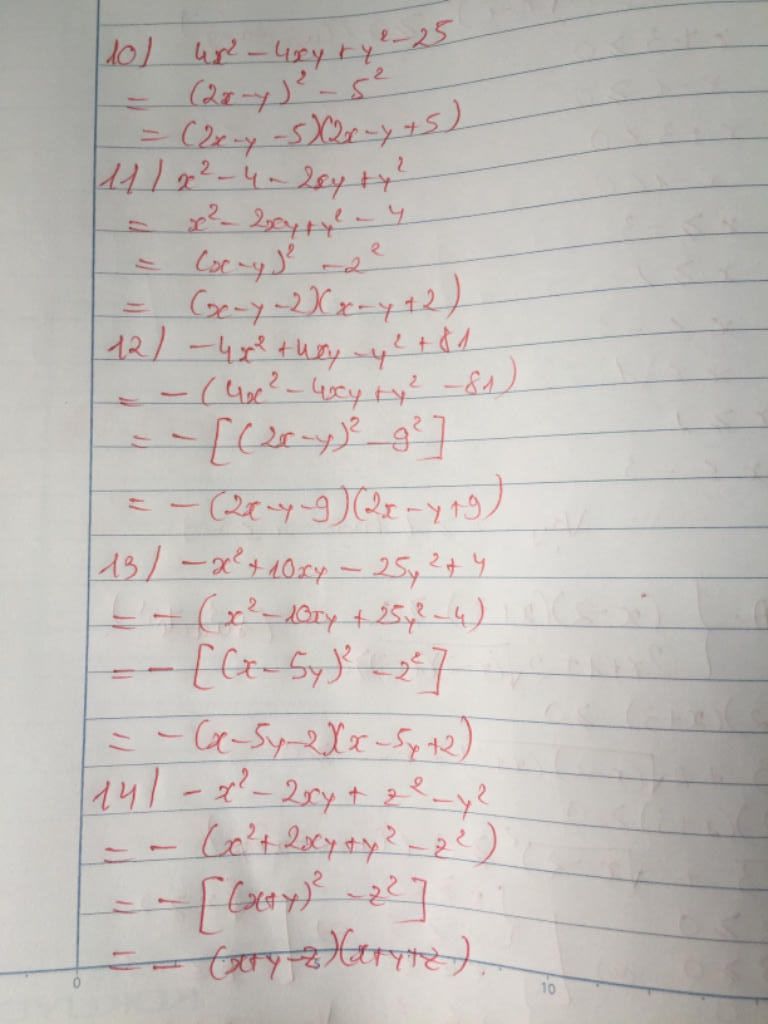 10) 4x² - 4xy + y² - 25
= (2x-y)² - 5²
= (2x-y-5)(2x-y+5)
11) x² - 4 - 2xy + y²
= x² - 2xy + y² - 4
= (x-y)² - 2²
= (x-y-2)(x-y+2)
12) -4x² + 4xy - y² + 81
= - (4x² - 4xy + y² - 81)
= - [(2x-y)² - 9²]
= - (2x-y-9)(2x-y+9)
13) -x² + 10xy - 25y² + 4
= - (x² - 10xy + 25y² - 4)
= - [(x-5y)² - 2²]
= - (x-5y-2)(x-5y+2)
14) -x² - 2xy + z² - y²
= - (x² + 2xy + y² - z²)
= - [(x+y)² - z²]
= - (x+y-z)(x+y+z).
0 10